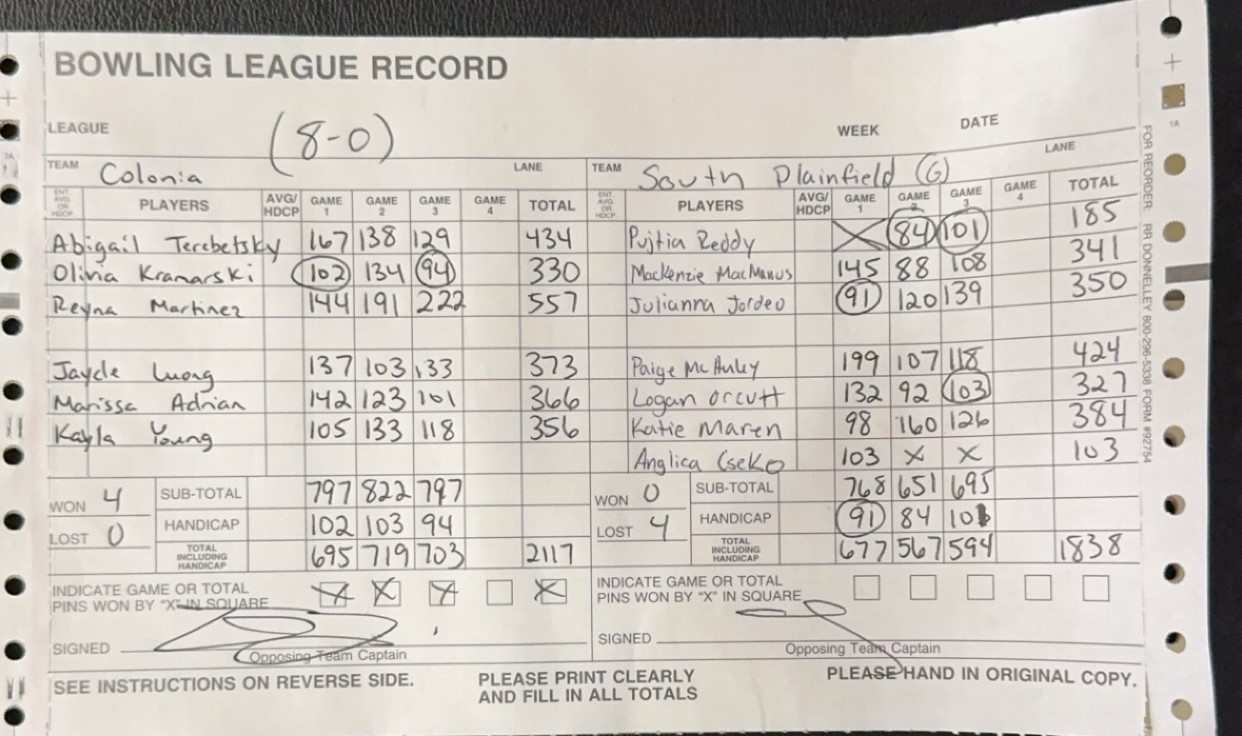 BOWLING LEAGUE RECORD
LEAGUE (8-0) WEEK DATE
TEAM Colonia LANE TEAM South Plainfield (G) LANE
ENT. AVG. OR HDCP PLAYERS AVG/HDCP GAME 1 GAME 2 GAME 3 GAME 4 TOTAL ENT. AVG. OR HDCP PLAYERS AVG/HDCP GAME 1 GAME 2 GAME 3 GAME 4 TOTAL
Abigail Terebetsky 167 138 129 434 Pujtia Reddy X 84 101 185
Olivia Kramarski 102 134 94 330 Mackenzie MacManus 145 88 108 341
Reyna Martinez 144 191 222 557 Julianna Jordeo 91 120 139 350
Jaycle Luong 137 103 133 373 Paige McAuley 199 107 118 424
Marissa Adrian 142 123 101 366 Logan Orcutt 132 92 103 327
Kayla Young 105 133 118 356 Katie Maren 98 160 126 384
Anglica Cseko 103 X X 103
WON 4 SUB-TOTAL 797 822 797 WON 0 SUB-TOTAL 768 651 695
LOST 0 HANDICAP 102 103 94 LOST 4 HANDICAP 91 84 101
TOTAL INCLUDING HANDICAP 695 719 703 2117 TOTAL INCLUDING HANDICAP 677 567 594 1838
INDICATE GAME OR TOTAL X X X X INDICATE GAME OR TOTAL
PINS WON BY "X" IN SQUARE PINS WON BY "X" IN SQUARE
SIGNED SIGNED
Opposing Team Captain Opposing Team Captain
SEE INSTRUCTIONS ON REVERSE SIDE. PLEASE PRINT CLEARLY PLEASE HAND IN ORIGINAL COPY.
AND FILL IN ALL TOTALS
FOR REORDER: RR DONNELLEY 800-296-5338 FORM #92754